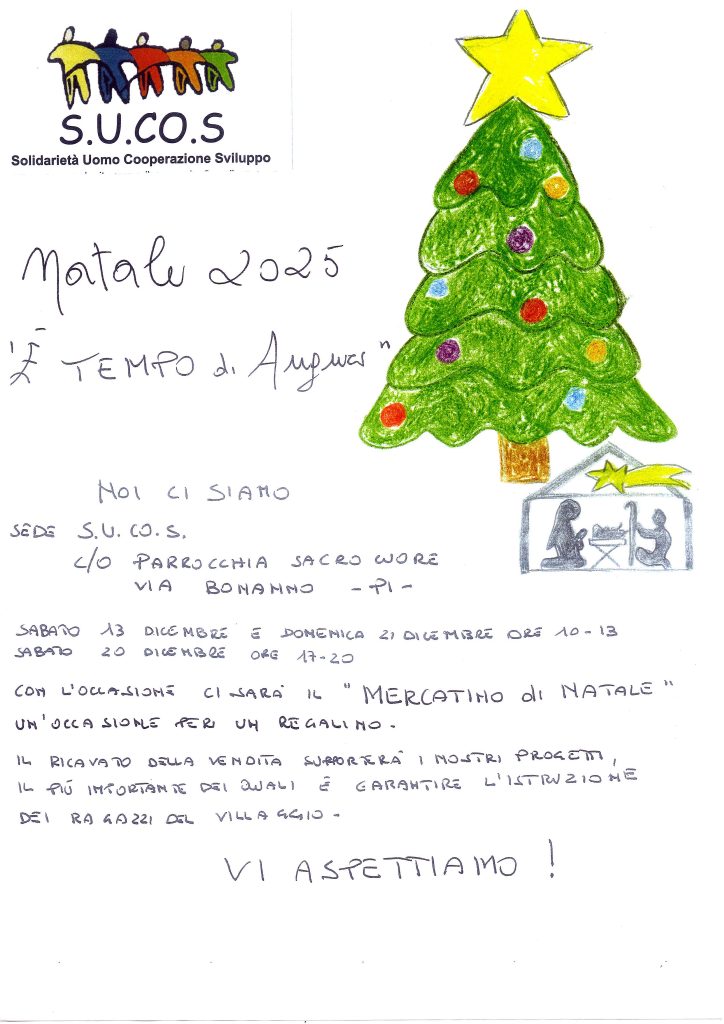 S.U.CO.S
Solidarietà Uomo Cooperazione Sviluppo
Natale 2025
"È TEMPO di Auguri"
NOI CI SIAMO
SEDE S.U.CO.S.
C/O PARROCCHIA SACRO CUORE
VIA BONANNO - PI -
SABATO 13 DICEMBRE E DOMENICA 21 DICEMBRE ORE 10-13
SABATO 20 DICEMBRE ORE 17-20
CON L'OCCASIONE CI SARÀ IL "MERCATINO di NATALE"
UN'OCCASIONE PER UN REGALINO.
IL RICAVATO DELLA VENDITA SUPPORTERÀ I NOSTRI PROGETTI,
IL PIÚ IMPORTANTE DEI QUALI È GARANTIRE L'ISTRUZIONE
DEI RAGAZZI DEL VILLAGGIO -
VI ASPETTIAMO !